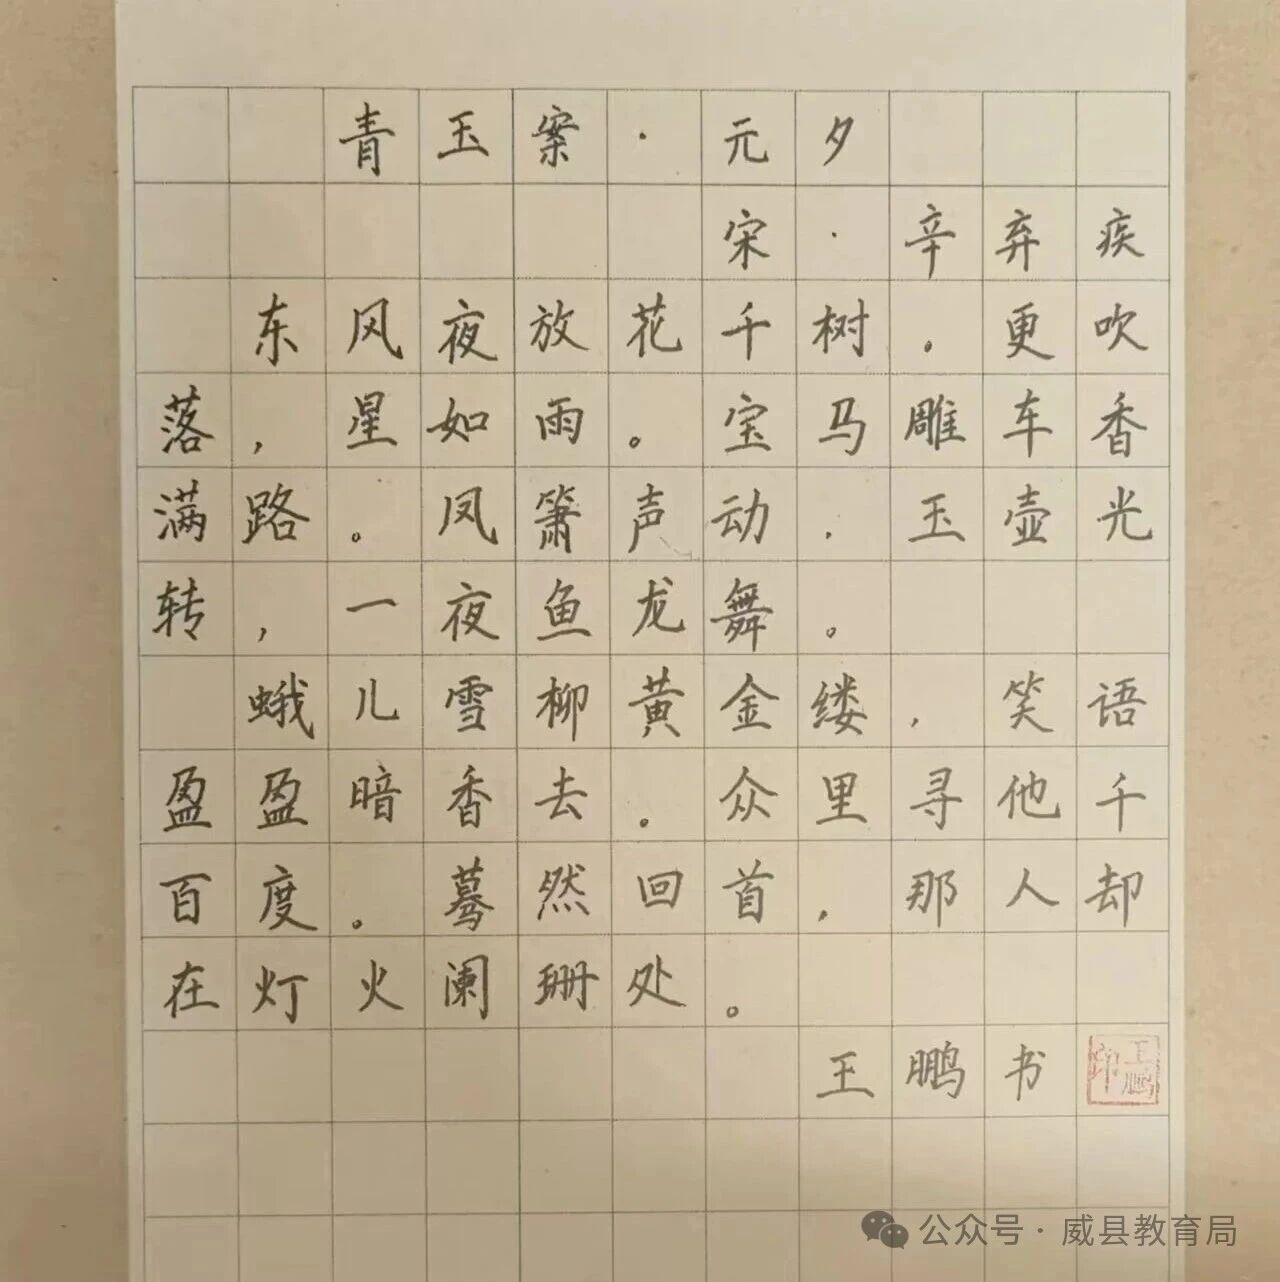 青玉案·元夕
宋·辛弃疾
东风夜放花千树。更吹
落，星如雨。宝马雕车香
满路。凤箫声动，玉壶光
转，一夜鱼龙舞。
蛾儿雪柳黄金缕，笑语
盈盈暗香去。众里寻他千
百度。蓦然回首，那人却
在灯火阑珊处。
王鹏书
王鹏印
公众号·威县教育局